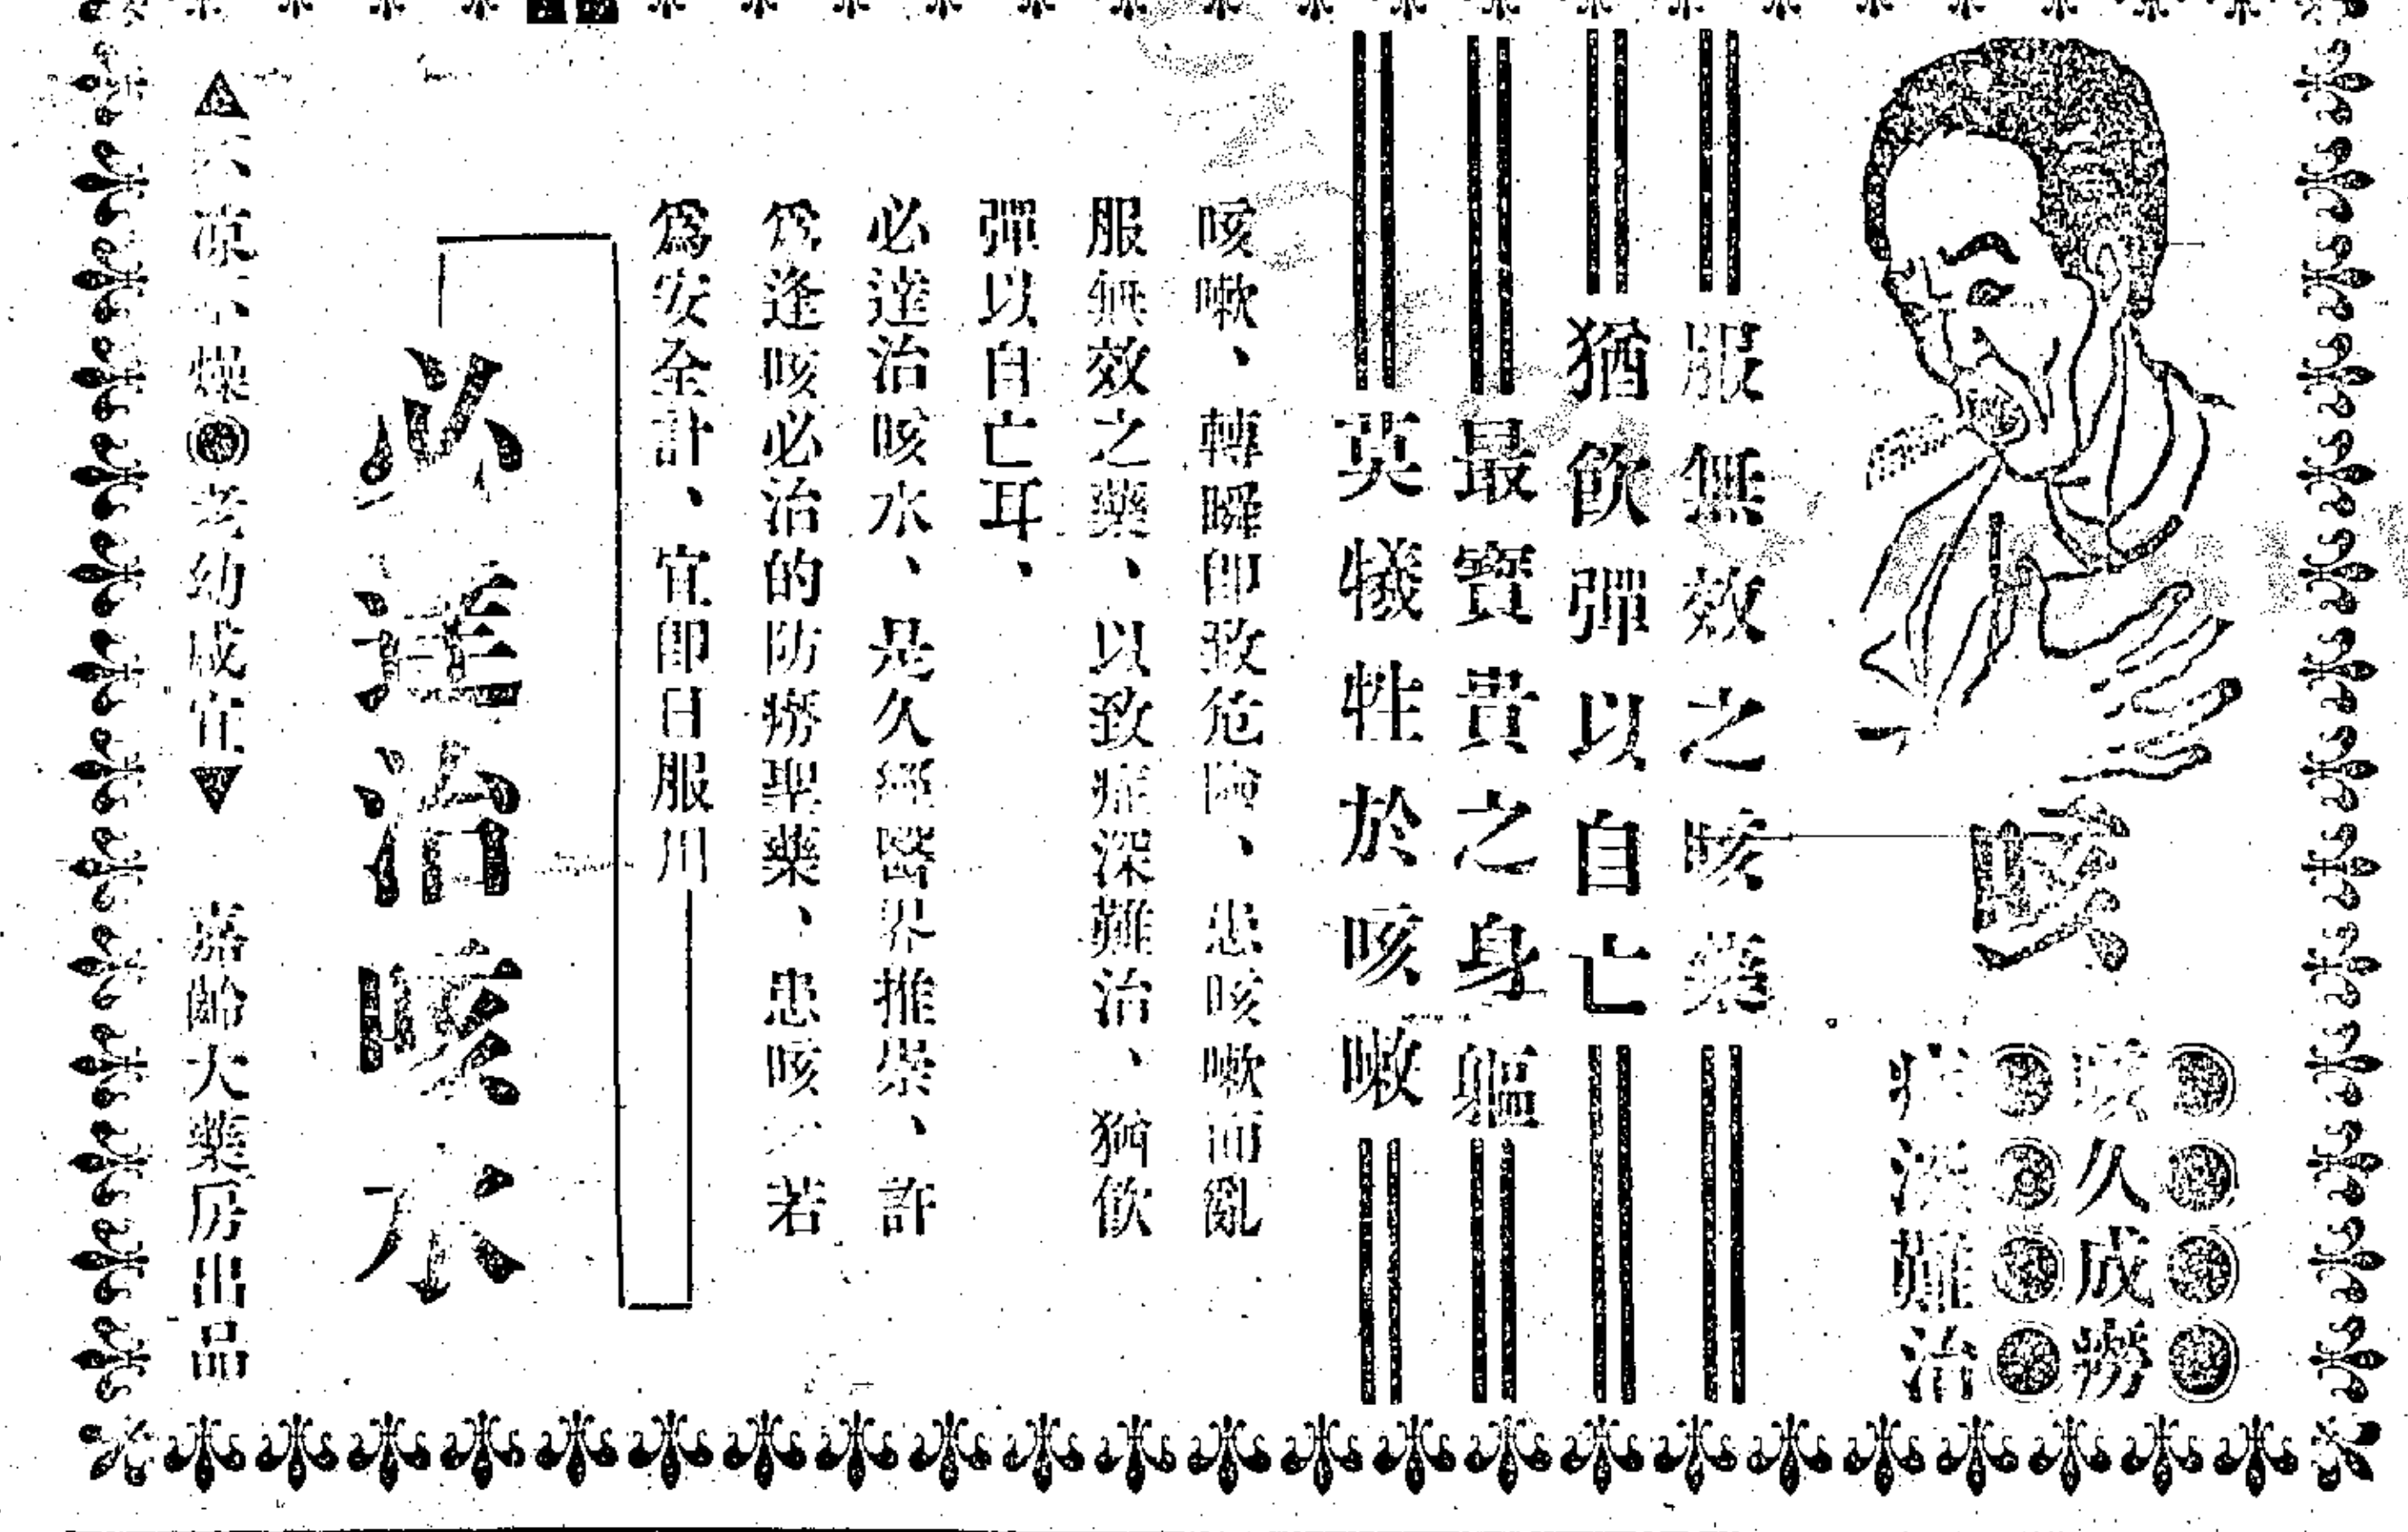 咳
咳久成癆
症深難治
服無效之咳藥
猶飲彈以自亡
最寶貴之身軀
莫犧牲於咳嗽
咳嗽、轉瞬卽致危險、患咳嗽而亂
服無效之藥、以致症深難治、猶飲
彈以自亡耳、
必達治咳水、是久經醫界推崇、許
為逢咳必治的防癆聖藥、患咳者若
爲安全計、宜卽日服用
必達治咳水
▲不凉不燥◉老幼咸宜▼ 嘉齡大藥房出品